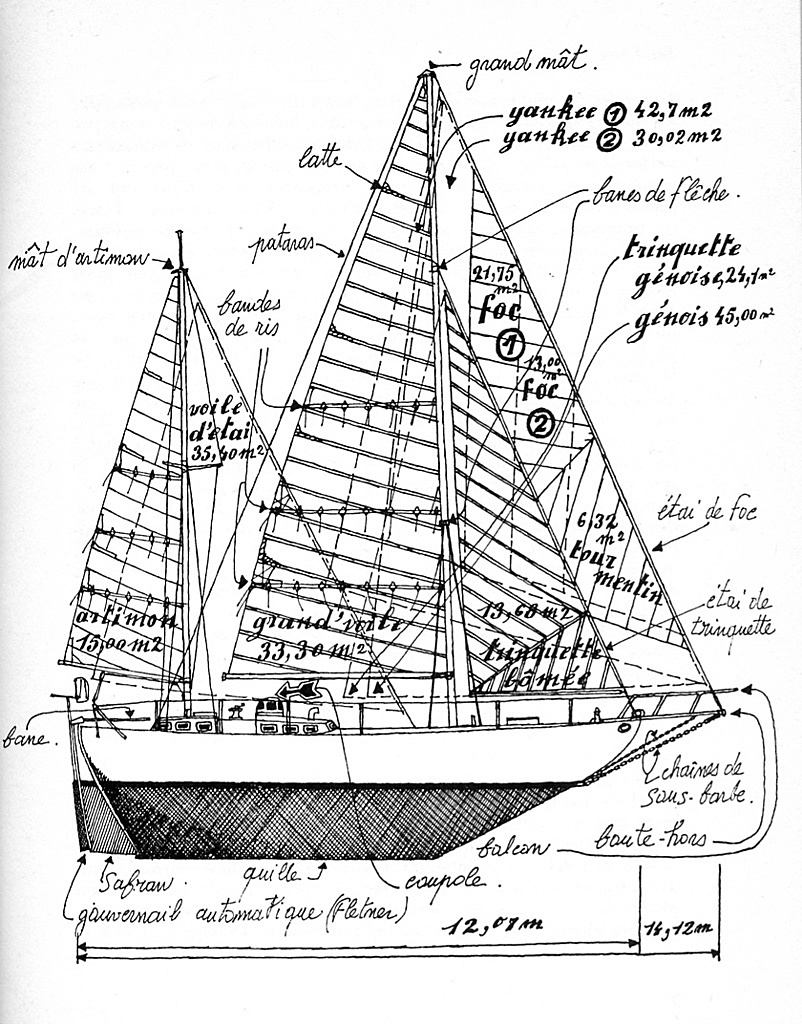 grand mât.
yankee ① 42,7 m2
yankee ② 30,02 m2
latte
bares de flêche.
pataras
mât d'artimon
trinquette
génoise, 24,1 m²
génois 45,00 m²
bandes
de ris
21,75
m²
foc
①
13,00
m²
foc
②
voile
d'étai
35,40 m²
étai de foc
6,32
m²
tour
mentin
artimon
15,00 m2
grand'voile
33,30 m²
13,68 m²
trinquette
bômée
étai de
trinquette
bare.
chaînes de
sous-barbe.
balcon
boute-hors
safran.
quille
coupole.
gouvernail automatique (Fletner)
12,07 m
14,12 m